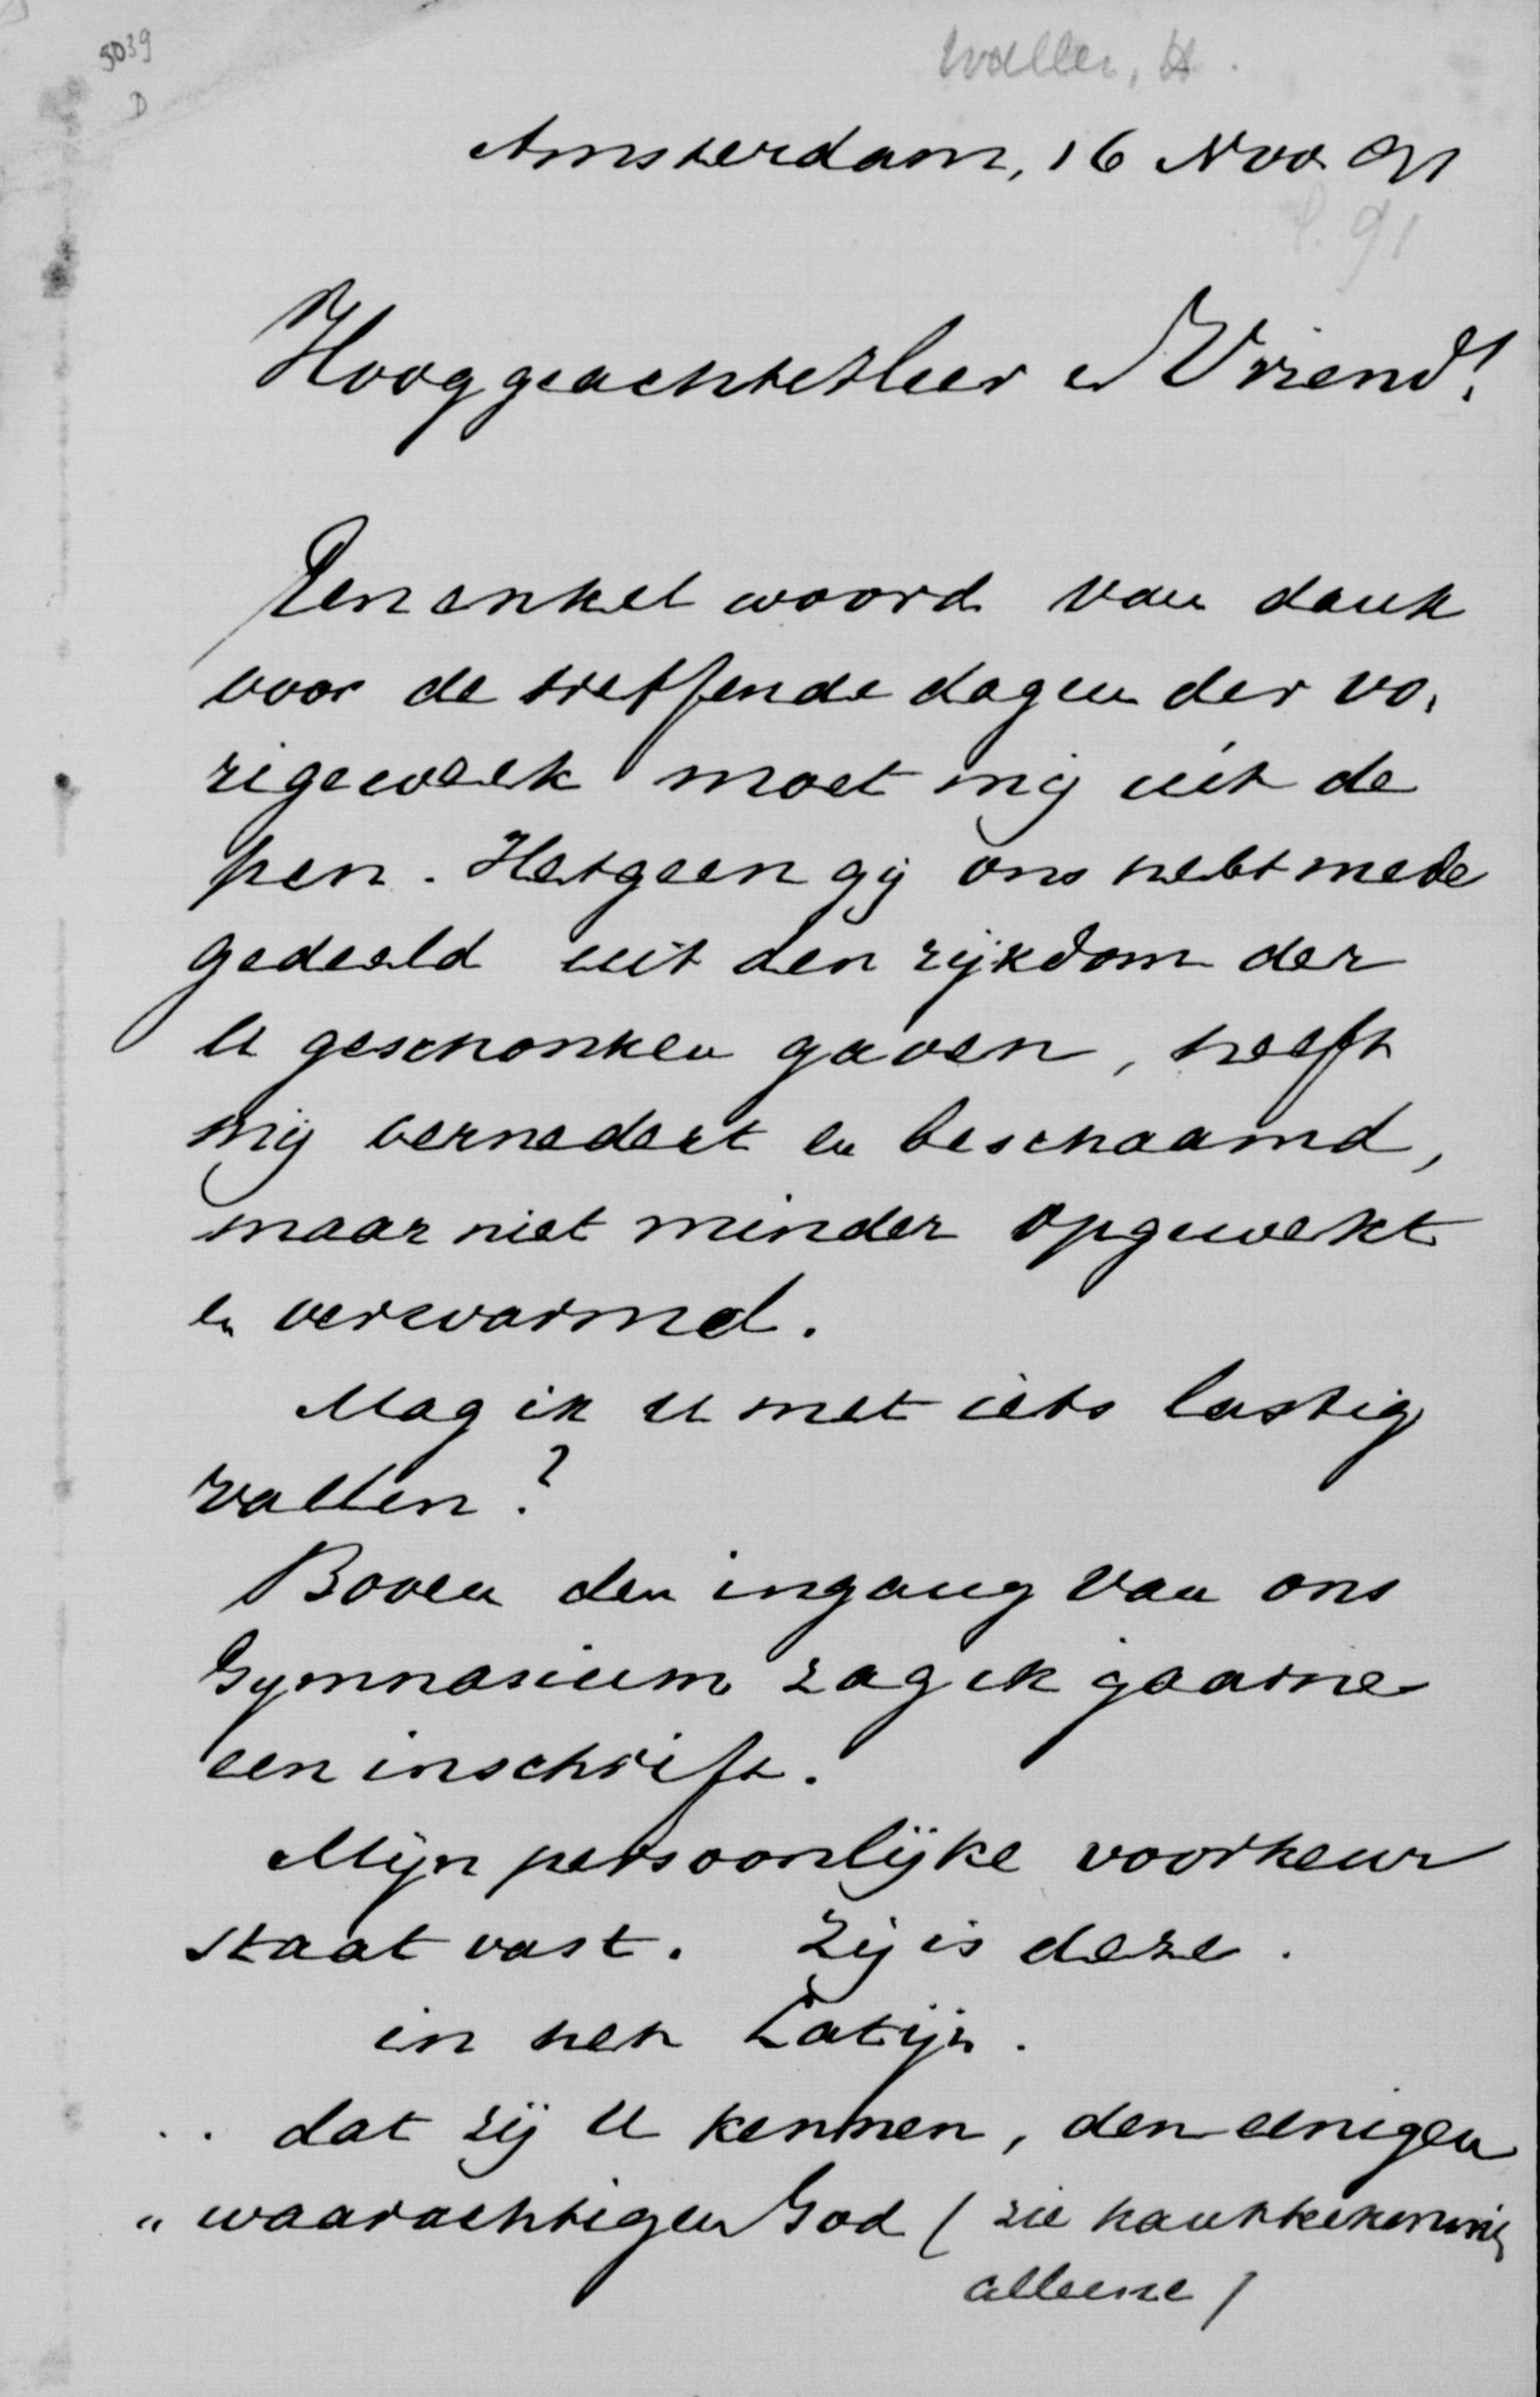 5039
D
Waller, H.
Amsterdam, 16 Nov 91
P. 91
Hooggeachte Heer en Vriend!
Een enkel woord van dank
voor de treffende dagen der vo-
rige week moet mij uit de
pen. Hetgeen gij ons hebt mede
gedeeld uit den rijkdom der
U geschonken gaven, heeft
mij vernedert en beschaamd,
maar niet minder opgewekt
en verwarmd.
Mag ik U met iets lastig
vallen?
Boven den ingang van ons
Gymnasium zag ik gaarne
een inschrift.
Mijn persoonlijke voorkeur
staat vast. Zij is deze.
in het Latijn.
.. dat zij U kennen, den eenigen
" waarachtigen God ( zie kantteekening
alleene )